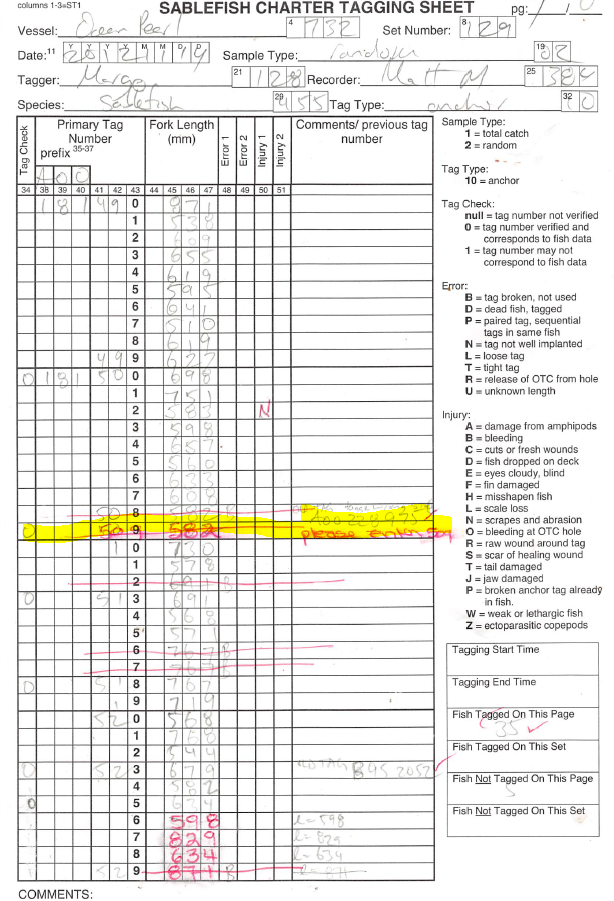 columns 1-3=ST1
SABLEFISH CHARTER TAGGING SHEET pg: 1 / 0
Vessel: Ocean Pearl 4 732 Set Number: 8 129
Y Y Y Y M M D D
Date: 11 Sample Type: random 19 02
Tagger: Margo 21 128 Recorder: Matt M 25 384
Species: Sablefish 29 455 Tag Type: anchor 32 10
Tag Check Primary Tag Number prefix 35-37 A00 Fork Length (mm) Error 1 Error 2 Injury 1 Injury 2 Comments/ previous tag number
34 38 39 40 41 42 43 44 45 46 47 48 49 50 51
1 8 1 49 0 871
1 538
2 609
3 655
4 619
5 595
6 641
7 510
8 619
49 9 627
0 181 50 0 698
1 751
2 583 N
3 598
4 657
5 560
6 633
7 608
50 8
0 509 9 582 please enter
1 0 730
1 578
2 691 B
0 51 3 691
4 568
5 571
6 767 B
7 767 B
0 51 8 767
9 719
52 0 568
1 768
2 544
0 52 3 679 B95 2052
4 582
0 5 634
6 598 l=598
7 829 l=829
8 634 l=634
52 9 871 B l=871
COMMENTS:
Sample Type:
1 = total catch
2 = random
Tag Type:
10 = anchor
Tag Check:
null = tag number not verified
0 = tag number verified and
corresponds to fish data
1 = tag number may not
correspond to fish data
Error:
B = tag broken, not used
D = dead fish, tagged
P = paired tag, sequential
tags in same fish
N = tag not well implanted
L = loose tag
T = tight tag
R = release of OTC from hole
U = unknown length
Injury:
A = damage from amphipods
B = bleeding
C = cuts or fresh wounds
D = fish dropped on deck
E = eyes cloudy, blind
F = fin damaged
H = misshapen fish
L = scale loss
N = scrapes and abrasion
O = bleeding at OTC hole
R = raw wound around tag
S = scar of healing wound
T = tail damaged
J = jaw damaged
P = broken anchor tag already
in fish.
W = weak or lethargic fish
Z = ectoparasitic copepods
Tagging Start Time
Tagging End Time
Fish Tagged On This Page
35
Fish Tagged On This Set
Fish Not Tagged On This Page
5
Fish Not Tagged On This Set